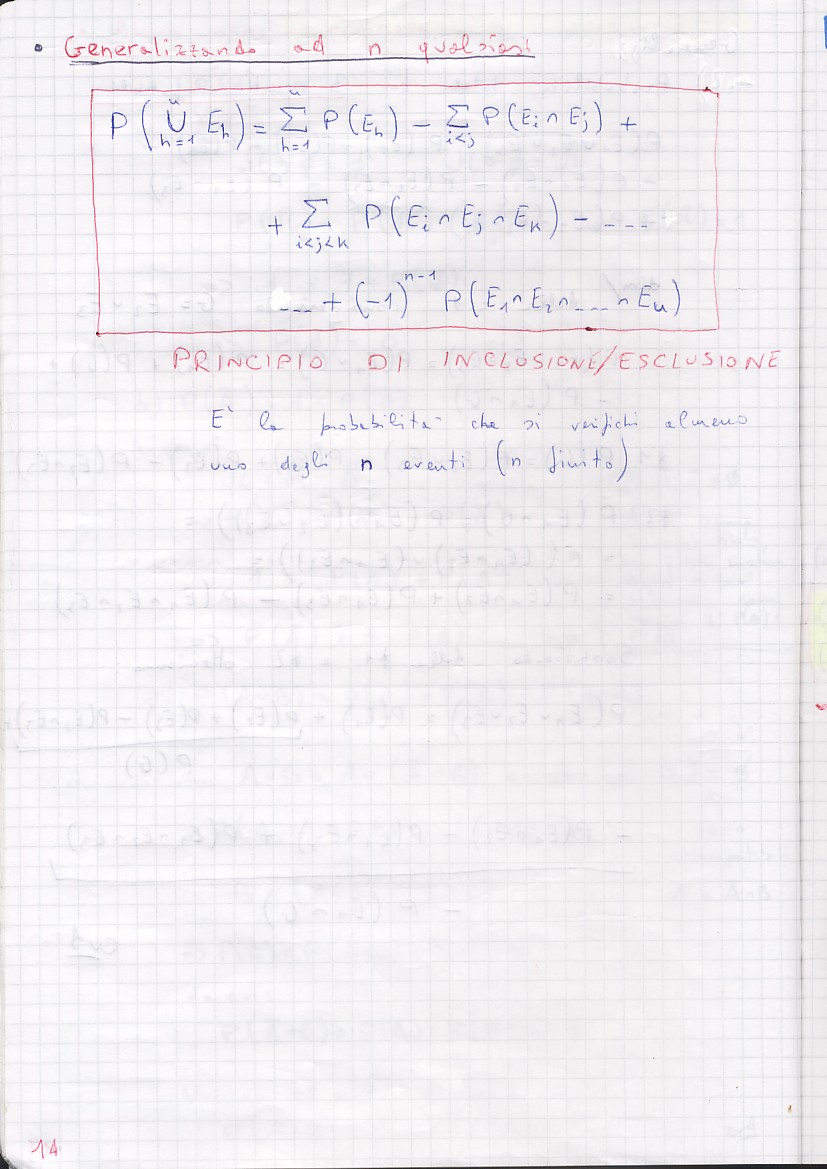 • Generalizzando ad n qualsiasi
P(⋃_{h=1}^{n} E_h) = ∑_{h=1}^{n} P(E_h) − ∑_{i<j} P(E_i ∩ E_j) +
+ ∑_{i<j<k} P(E_i ∩ E_j ∩ E_k) − ....
... + (−1)^{n−1} P(E_1 ∩ E_2 ∩ .... ∩ E_n)
PRINCIPIO DI INCLUSIONE/ESCLUSIONE
E' la probabilità che si verifichi almeno
uno degli n eventi (n finito)
14